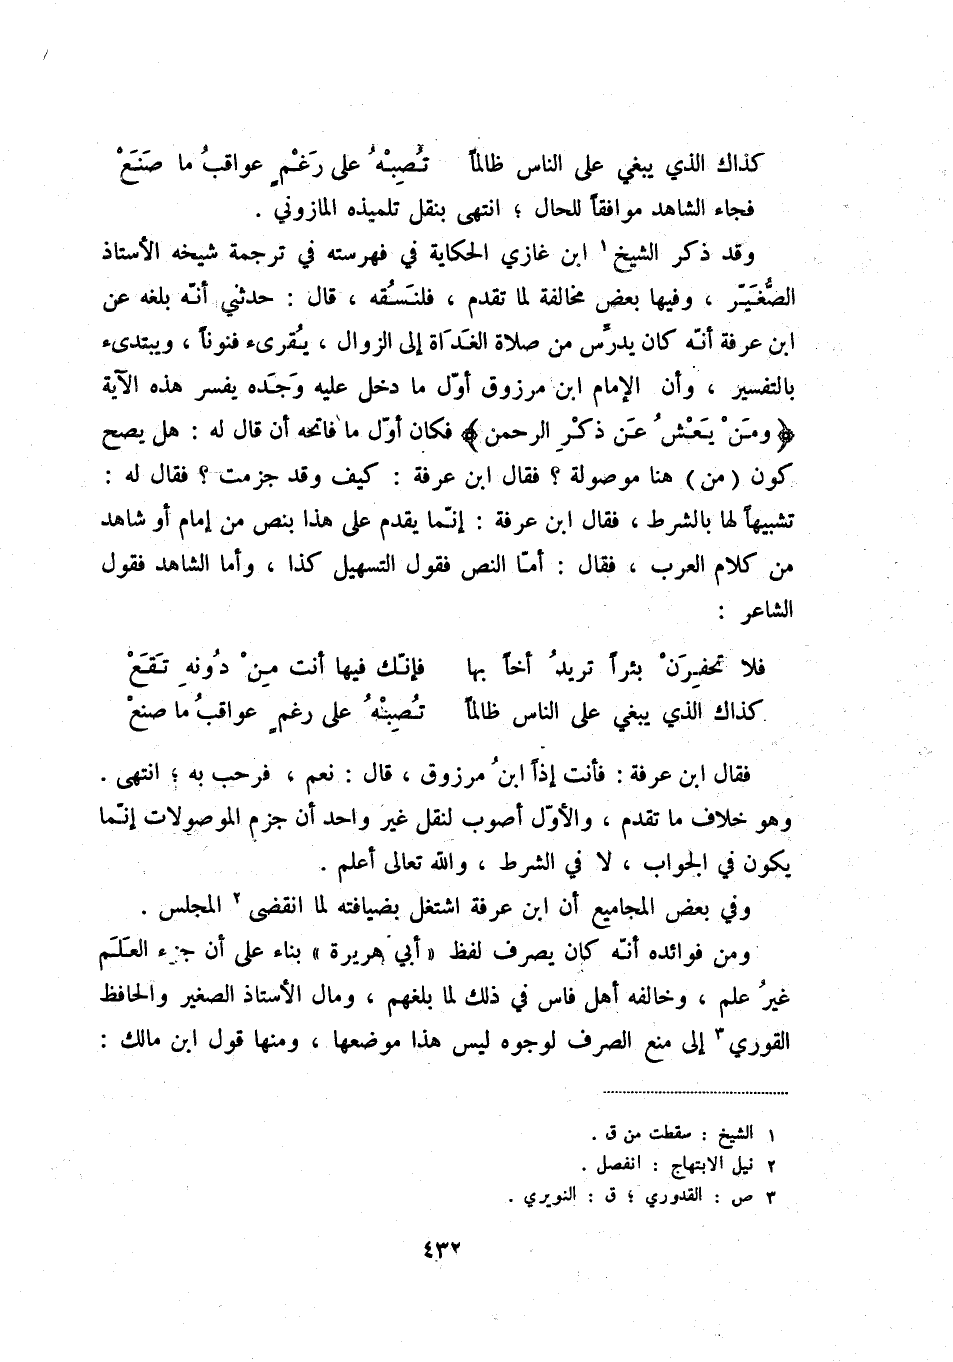 كذاك الذي يبغي على الناس ظالماً تُصِبْهُ على رَغْمٍ عواقبُ ما صَنَعْ
فجاء الشاهد موافقاً للحال ؛ انتهى بنقل تلميذه المازوني .
وقد ذكر الشيخ ١ ابن غازي الحكاية في فهرسته في ترجمة شيخه الأستاذ
الصُّغَيّر ، وفيها بعض مخالفة لما تقدم ، فلنَسُقه ، قال : حدثني أنّه بلغه عن
ابن عرفة أنّه كان يدرّس من صلاة الغَدَاة إلى الزوال ، يُقرىء فنوناً ، ويبتدىء
بالتفسير ، وأن الإمام ابن مرزوق أوّل ما دخل عليه وَجَده يفسر هذه الآية
﴿ ومَنْ يَعْشُ عَن ذكْرِ الرحمن ﴾ فكان أوّل ما فاتحه أن قال له : هل يصح
كون ( من ) هنا موصولة ؟ فقال ابن عرفة : كيف وقد جزمت ؟ فقال له :
تشبيهاً لها بالشرط ، فقال ابن عرفة : إنّما يقدم على هذا بنص من إمام أو شاهد
من كلام العرب ، فقال : أمّا النص فقول التسهيل كذا ، وأما الشاهد فقول
الشاعر :
فلا تحفِرَنْ بئراً تريدُ أخاً بها فإنّك فيها أنت مِنْ دُونهِ تَقَعْ
كذاك الذي يبغي على الناس ظالماً تُصِبْهُ على رغمٍ عواقبُ ما صنعْ
فقال ابن عرفة : فأنت إذاً ابنُ مرزوق ، قال : نعم ، فرحب به ؛ انتهى .
وهو خلاف ما تقدم ، والأوّل أصوب لنقل غير واحد أن جزم الموصولات إنّما
يكون في الجواب ، لا في الشرط ، والله تعالى أعلم .
وفي بعض المجاميع أن ابن عرفة اشتغل بضيافته لما انقضى ٢ المجلس .
ومن فوائده أنّه كان يصرف لفظ « أبي هريرة » بناء على أن جزء العَلَم
غيرُ علم ، وخالفه أهل فاس في ذلك لما بلغهم ، ومال الأستاذ الصغير والحافظ
القوري ٣ إلى منع الصرف لوجوه ليس هذا موضعها ، ومنها قول ابن مالك :
١ الشيخ : سقطت من ق .
٢ نيل الابتهاج : انفصل .
٣ ص : القدوري ؛ ق : النويري .
٤٣٢